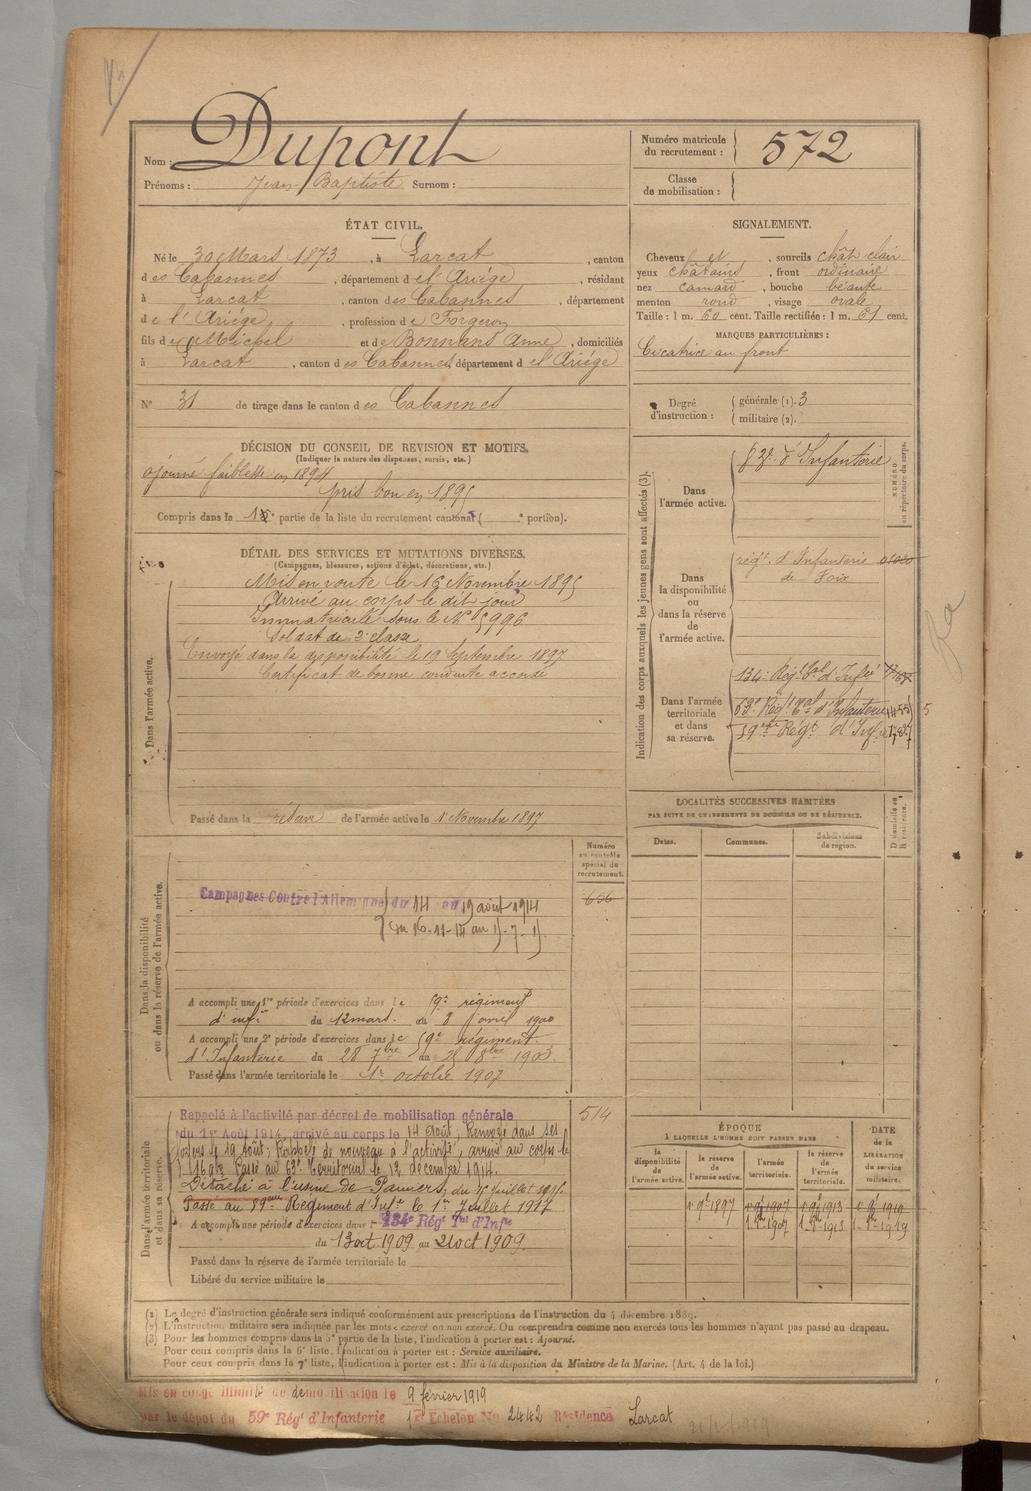 Nom : Dupont
Prénoms : Jean-Baptiste Surnom :
Numéro matricule
du recrutement : 572
Classe
de mobilisation :
ÉTAT CIVIL.
Né le 30 Mars 1873, à Larcat, canton
des Cabannes, département de l'Ariége, résidant
à Larcat, canton des Cabannes, département
de l'Ariége, profession de Forgeron
fils de Michel et de Bonnans Anne, domiciliés
à Larcat, canton des Cabannes, département de l'Ariége
N° 31 de tirage dans le canton des Cabannes
SIGNALEMENT.
Cheveux et, sourcils chât clair
yeux châtains, front ordinaire
nez camard, bouche béante
menton rond, visage ovale
Taille : 1 m. 60 cent. Taille rectifiée : 1 m. 61 cent.
MARQUES PARTICULIÈRES :
Cicatrice au front
Degré
d'instruction :
générale (1). 3
militaire (2).
DÉCISION DU CONSEIL DE REVISION ET MOTIFS.
(Indiquer la nature des dispenses, sursis, etc.)
ajourné faiblesse en 1894
pris bon en 1895
Compris dans la partie de la liste du recrutement cantonal ( portion).
DÉTAIL DES SERVICES ET MUTATIONS DIVERSES.
(Campagnes, blessures, actions d'éclat, décorations, etc.)
Dans l'armée active.
Mis en route le 16 Novembre 1895
Arrivé au corps le dit jour
Immatriculé sous le N° 5996
Soldat de 2e classe
Envoyé dans la disponibilité le 19 Septembre 1897
Certificat de bonne conduite accordé
Passé dans la réserve de l'armée active le 1er Novembre 1897
Indication des corps auxquels les jeunes gens sont affectés (3).
NUMÉRO
au répertoire du corps.
Dans
l'armée active.
d'Infanterie
Dans
la disponibilité
ou dans la réserve
de
l'armée active.
régt. d'Infanterie
de Foix
Dans l'armée
territoriale
et dans
sa réserve.
134e Régt tal d'Infie
63e Régt tal d'Infanterie
59e Régt. d'Inf.
LOCALITÉS SUCCESSIVES HABITÉES
PAR SUITE DE CHANGEMENTS DE DOMICILE OU DE RÉSIDENCE.
Dates.
Communes.
Subdivisions
de région.
D domicile ou
R résidence.
Dans la disponibilité
ou dans la réserve de l'armée active.
Numéro
au contrôle
spécial de
recrutement.
656
Campagnes Contre l'Allemagne du 14 au 19 août 1914
du 16-11-14 au
A accompli une 1re période d'exercices dans le 59e régiment
d'infie du 12 mars au 8 avril 1900
A accompli une 2e période d'exercices dans le 59e régiment
d'Infanterie du 28 7bre au 25 8bre 1903
Passé dans l'armée territoriale le 1er octobre 1907
Dans l'armée territoriale
et dans sa réserve.
514
Rappelé à l'activité par décret de mobilisation générale
du 1er Août 1914, arrivé au corps le 14 Août. Renvoyé dans ses
foyers le 19 Août. Rappelé de nouveau à l'activité, arrivé au corps le
16 9bre. Passé au 63e Territorial le 12 décembre 1914.
Détaché à l'usine de Pamiers, du Juillet
Passé au 59eme Régiment d'Infie le 1er Juillet 1917
A accompli une période d'exercices dans le 134e Régt Tal d'Infie
du 13 oct 1909 au 21 oct 1909.
Passé dans la réserve de l'armée territoriale le
Libéré du service militaire le
ÉPOQUE
À LAQUELLE L'HOMME DOIT PASSER DANS
la
disponibilité
de
l'armée active.
la réserve
de
l'armée active.
l'armée
territoriale.
la réserve
de
l'armée
territoriale.
DATE
de la
LIBÉRATION
du service
militaire.
1897 1907 1913 1919
1907 1913 1919
(1) Le degré d'instruction générale sera indiqué conformément aux prescriptions de l'instruction du 4 décembre 1889.
(2) L'instruction militaire sera indiquée par les mots : exercé ou non exercé. On comprendra comme non exercés tous les hommes n'ayant pas passé au drapeau.
(3) Pour les hommes compris dans la 5e partie de la liste, l'indication à porter est : Ajourné.
Pour ceux compris dans la 6e liste, l'indication à porter est : Service auxiliaire.
Pour ceux compris dans la 7e liste, l'indication à porter est : Mis à la disposition du Ministre de la Marine. (Art. 4 de la loi.)
Mis en congé illimité de démobilisation le 9 février 1919
par le dépôt du 59e Régt d'Infanterie Echelon No 2442 Résidence Larcat